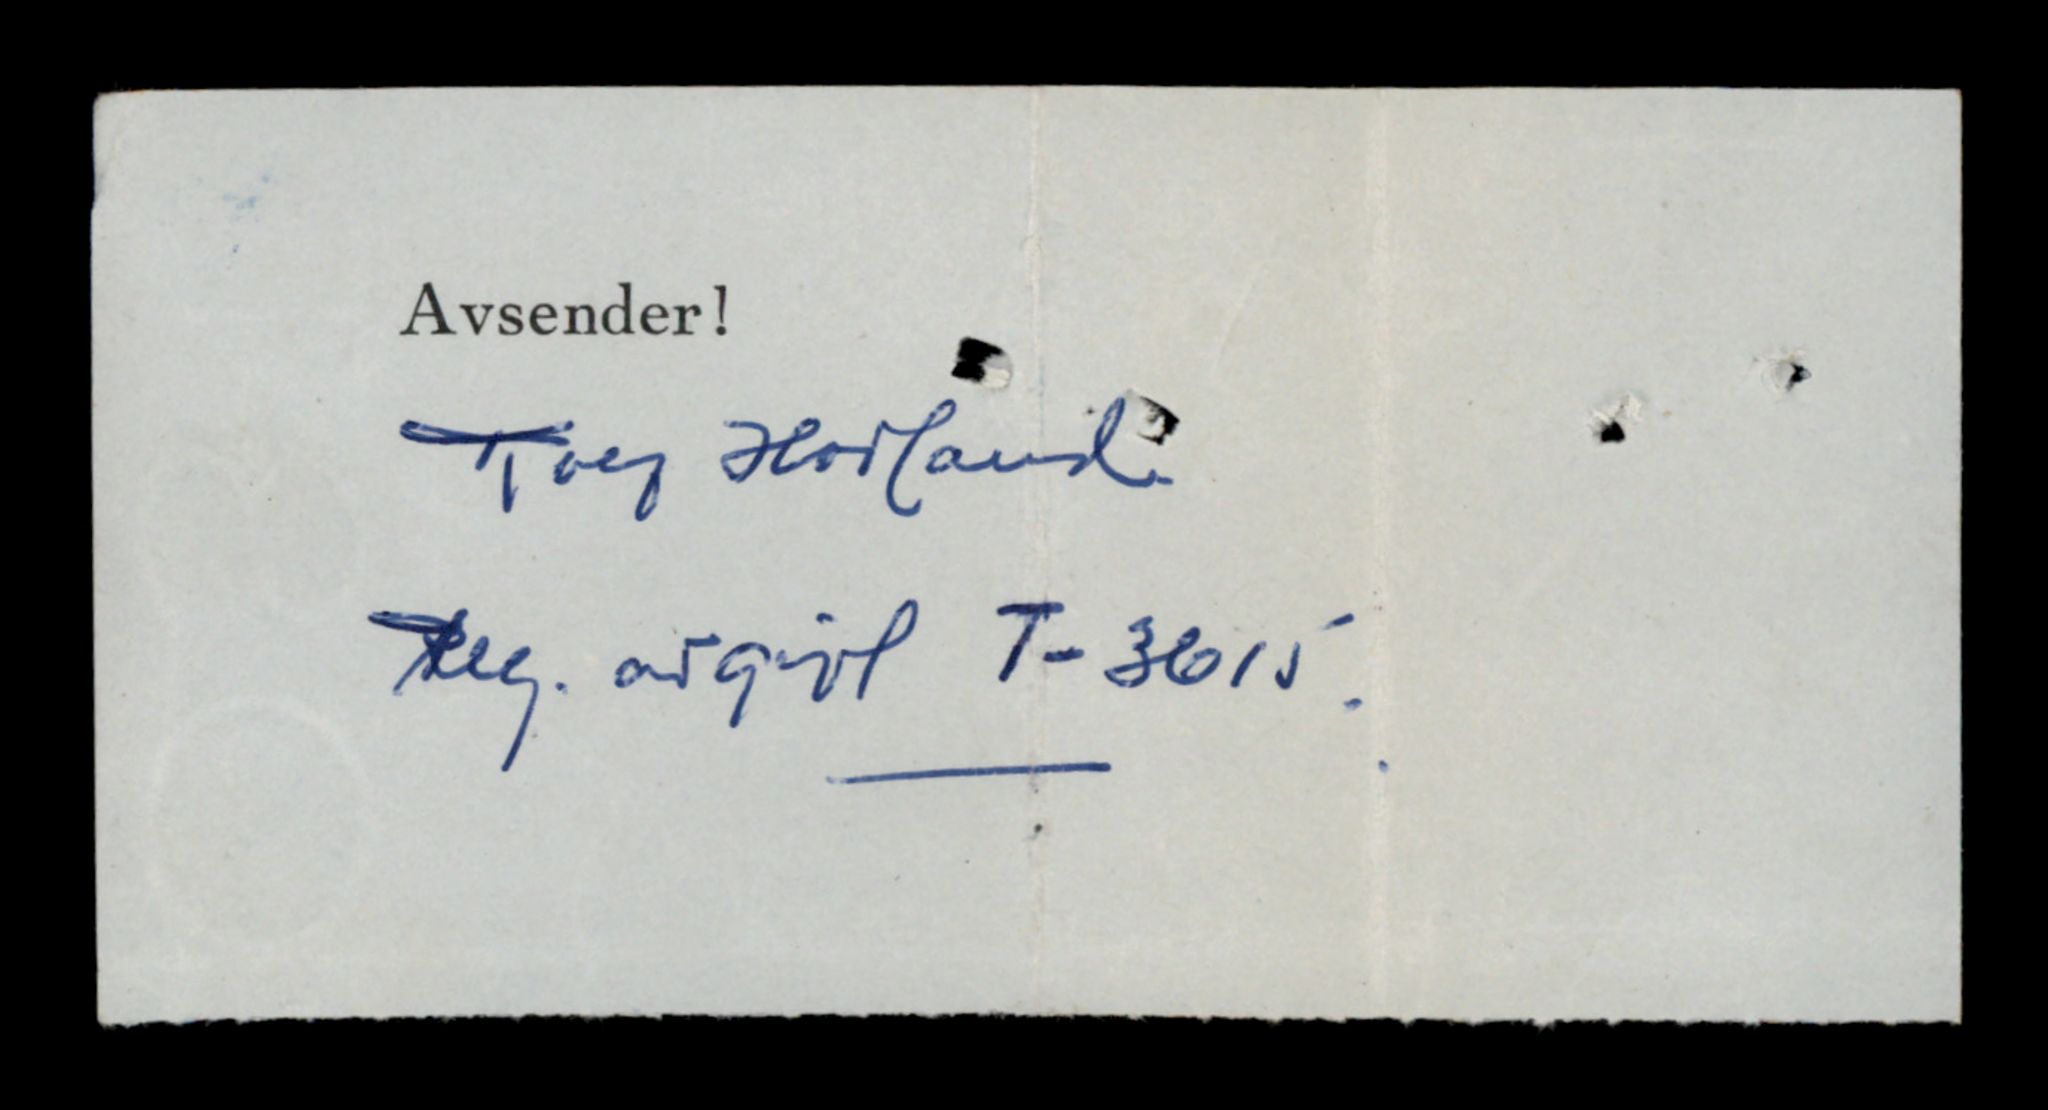 Avsender!
Hovland.
Reg. avgift T-3615.